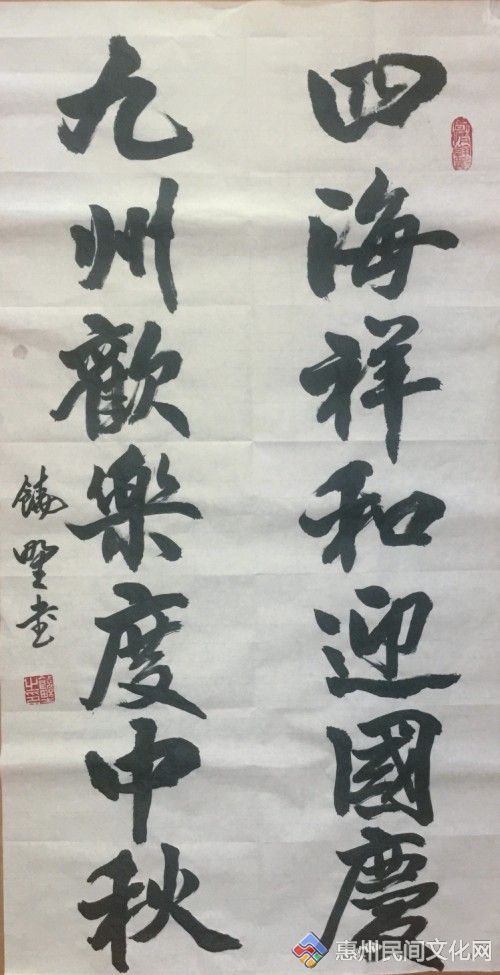 四海祥和迎國慶
九州歡樂度中秋
书
惠州民间文化网